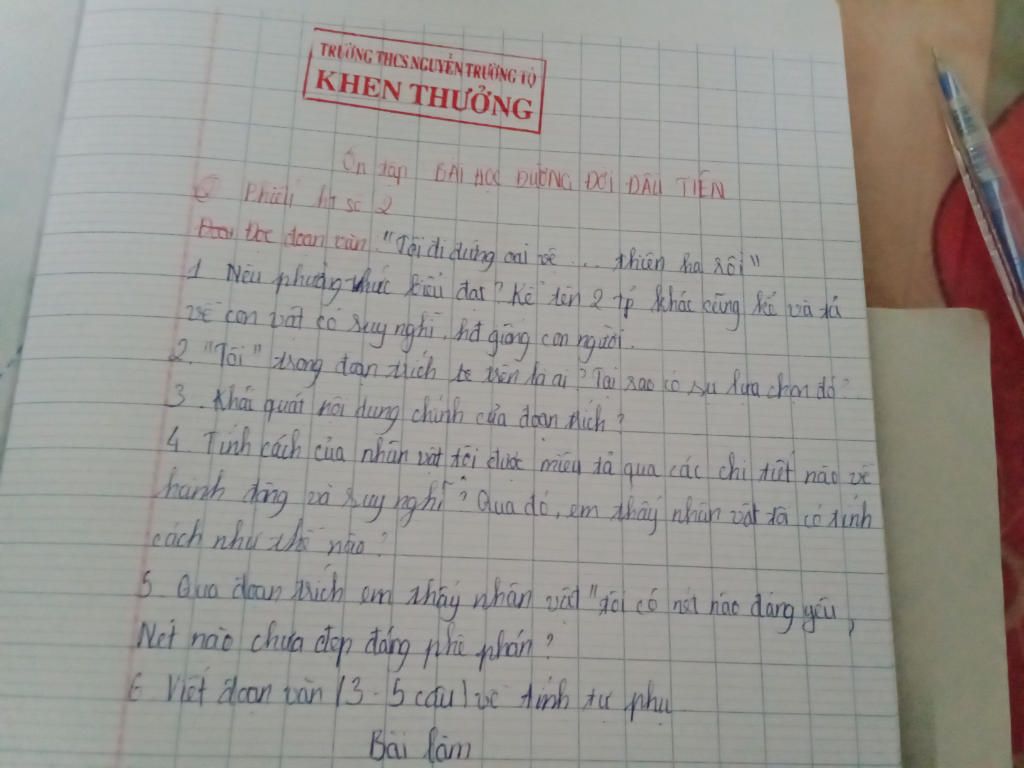 TRƯỜNG THCS NGUYỄN TRƯỜNG TỘ
KHEN THƯỞNG
Ôn tập BÀI HỌC ĐƯỜNG ĐỜI ĐẦU TIÊN
Phiếu ht số 2
Đọc đoạn văn "Tôi đi đứng oai vệ ... thiên hạ rồi"
1 Nêu phương thức biểu đạt? Kể tên 2 tp khác cũng kể và tả
về con vật có suy nghĩ, hđ giống con người.
2. "Tôi" trong đoạn trích trên là ai? Tại sao có sự lựa chọn đó?
3. Khái quát nội dung chính của đoạn trích?
4. Tính cách của nhân vật tôi được miêu tả qua các chi tiết nào về
hành động và suy nghĩ? Qua đó, em thấy nhân vật đã có tính
cách như thế nào?
5. Qua đoạn trích em thấy nhân vật "tôi có nét nào đáng yêu,
Nét nào chưa đẹp đáng phê phán?
6 Viết đoạn văn (3-5 câu) về tính tự phụ
Bài làm